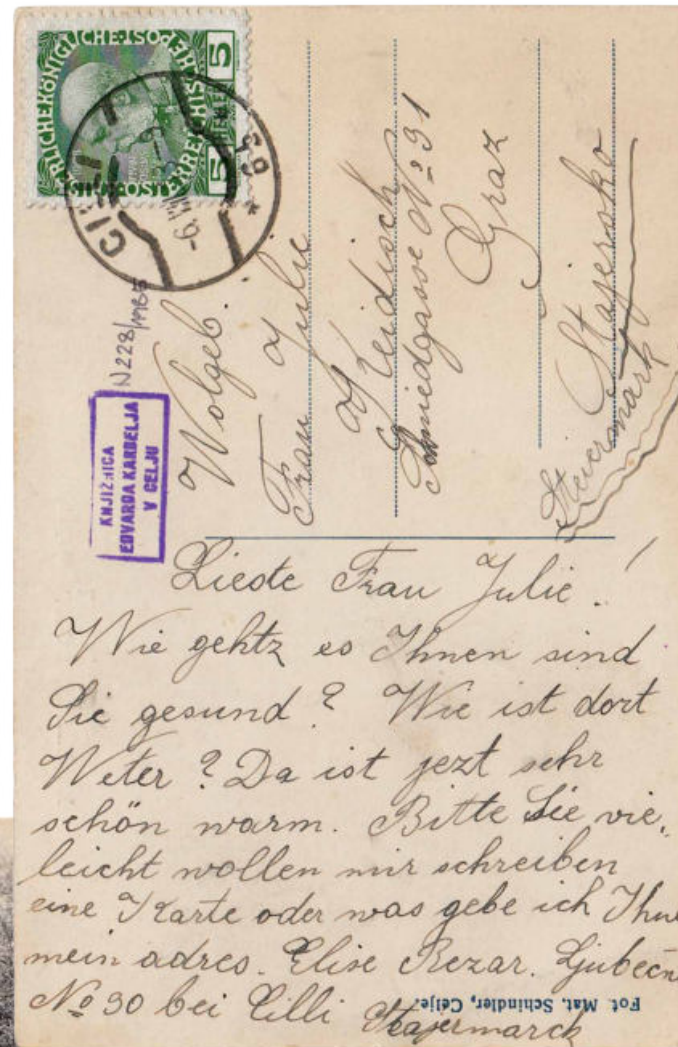 5 5
CILLI
-6.
* 69
N228/1985
KNJIŽNICA
EDVARDA KARDELJA
V CELJU
Wolgeb.
Frau Julie
Kreidisch
Schmiedgasse № 31
Graz
Stajersko
Steiermark
Lieste Frau Julie!
Wie gehtz es Ihnen sind
Sie gesund? Wie ist dort
Weter? Da ist jezt sehr
schön warm. Bitte Sie vie,
leicht wollen mir schreiben
eine Karte oder was gebe ich Ihne
mein adres. Elise Rezar. Ljubečn
№ 30 bei Cilli Stajermarck
Fot. Mat. Schindler, Celje.